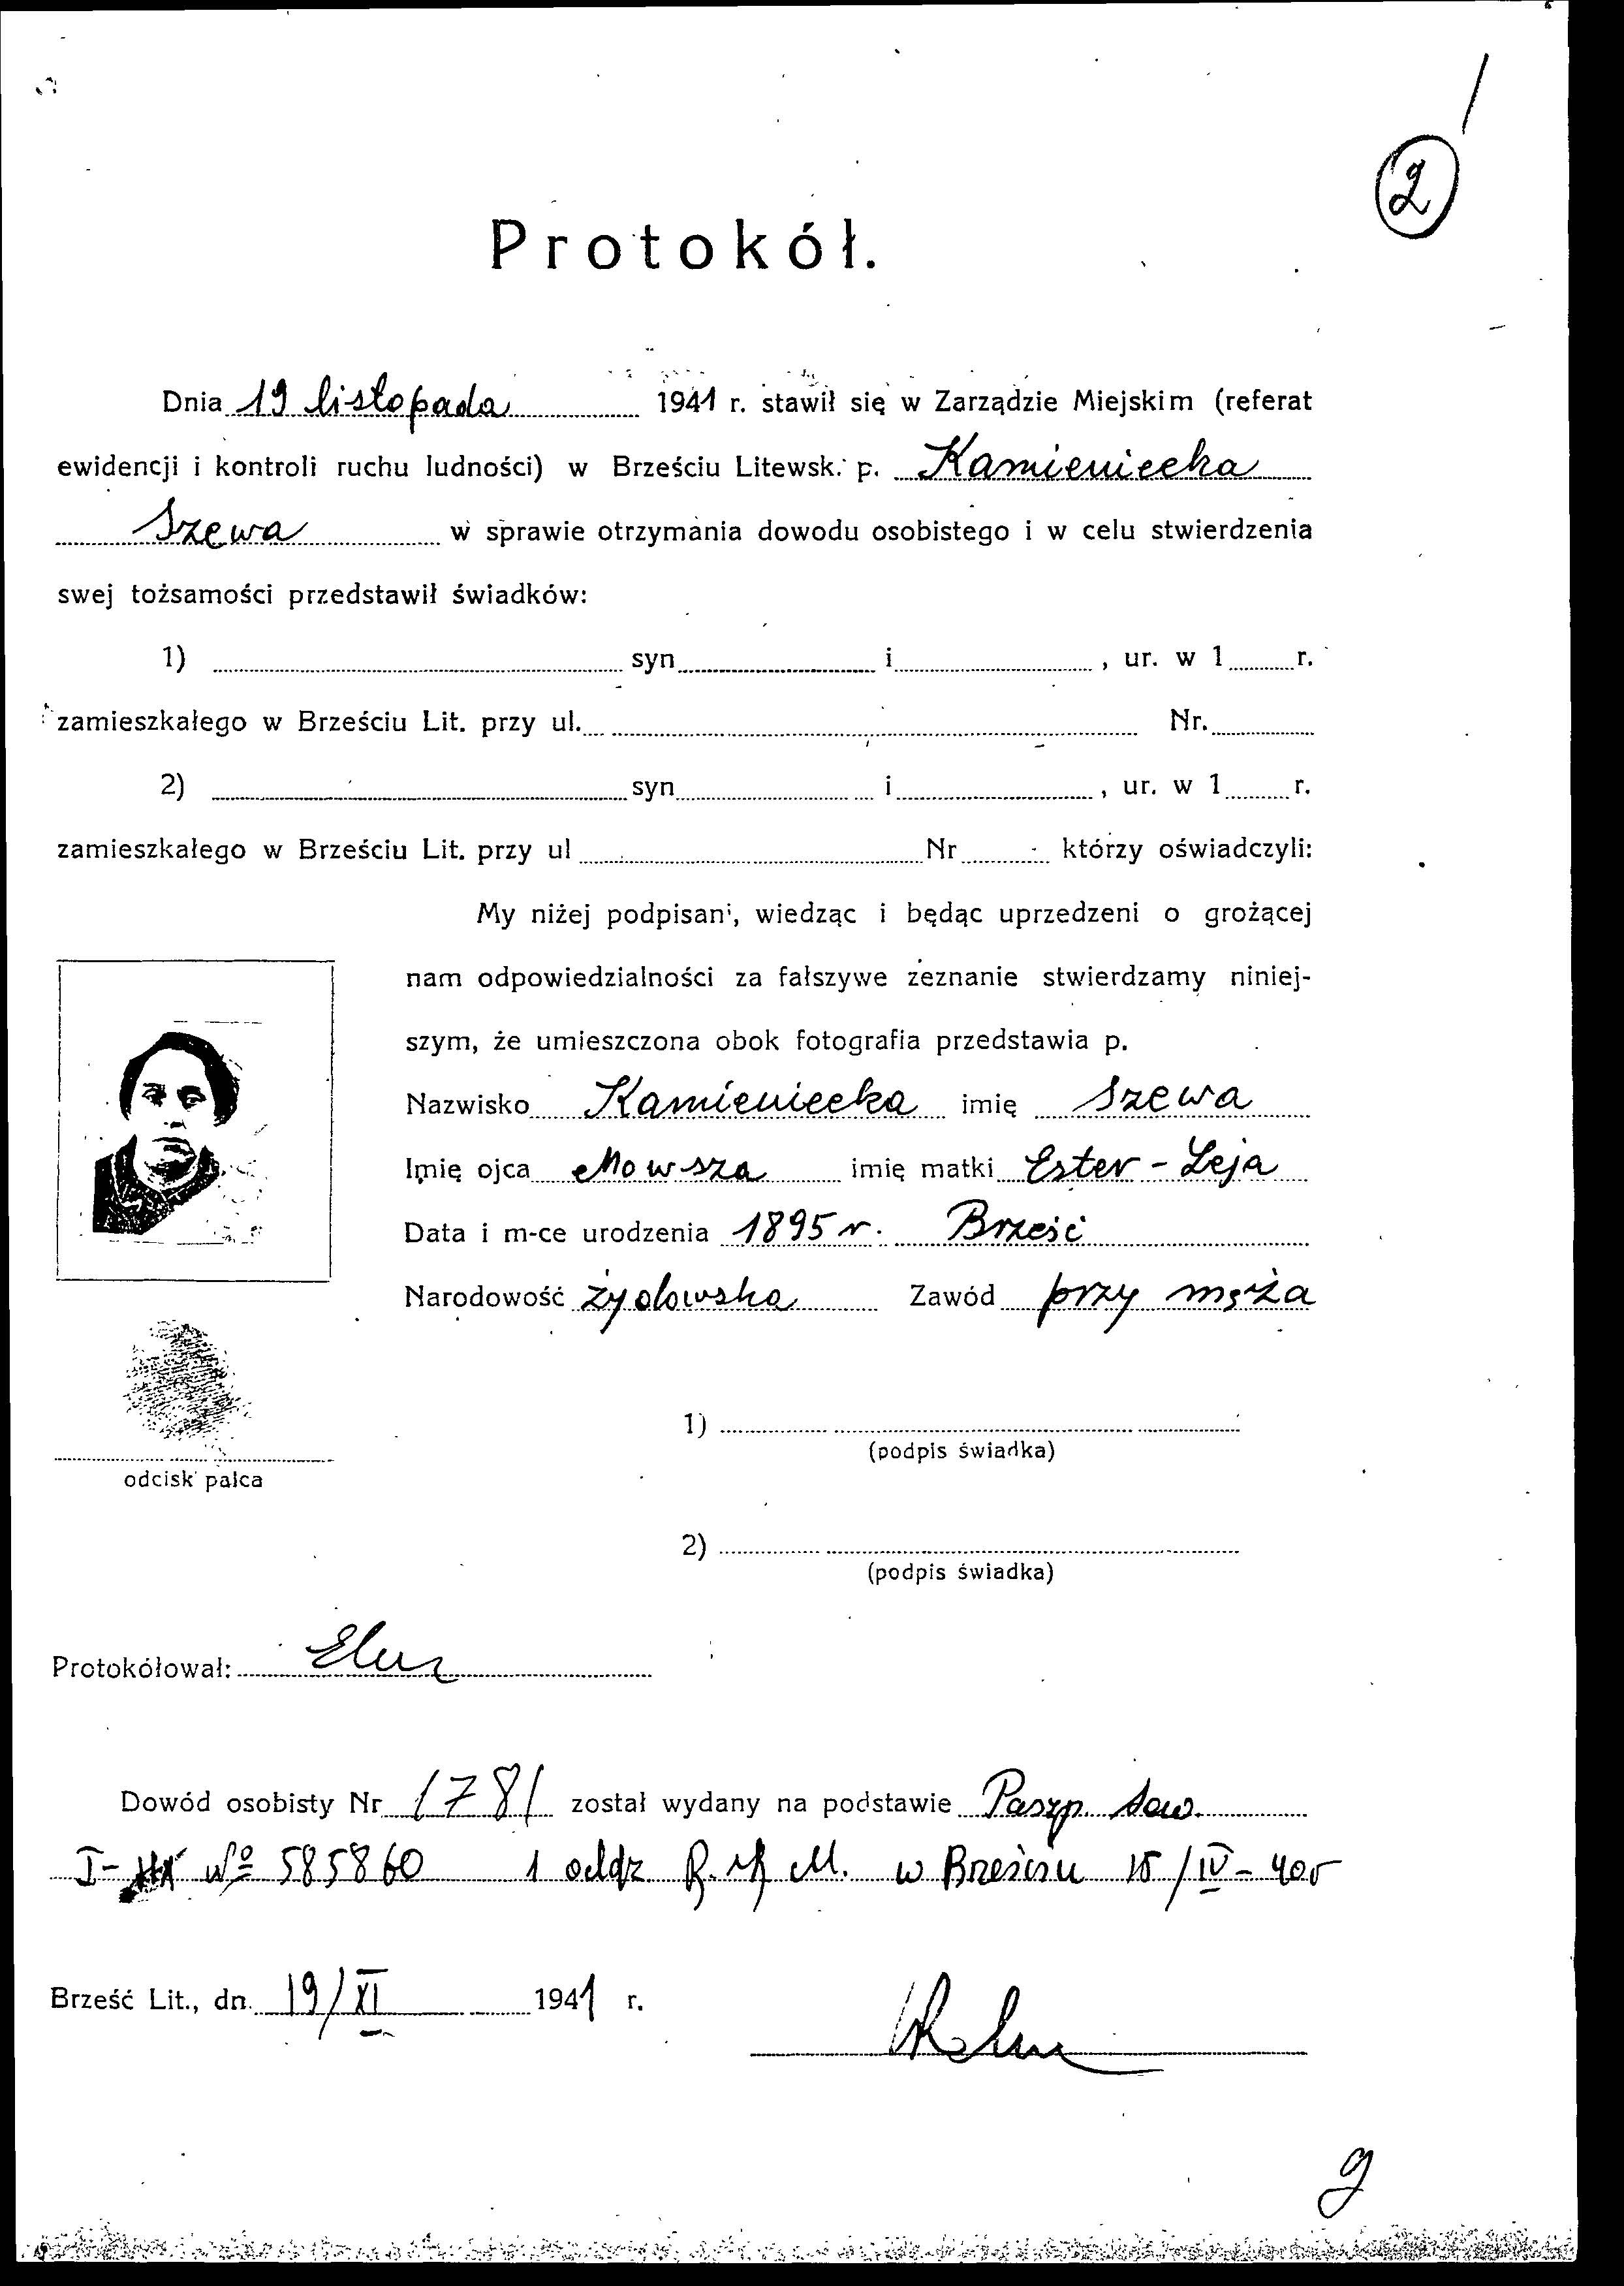 2
Protokół.
Dnia 19 listopada 1941 r. stawił się w Zarządzie Miejskim (referat
ewidencji i kontroli ruchu ludności) w Brześciu Litewsk. p. Kamieniecka
Szewa w sprawie otrzymania dowodu osobistego i w celu stwierdzenia
swej tożsamości przedstawił świadków:
1) syn i , ur. w 1 r.
zamieszkałego w Brześciu Lit. przy ul. Nr.
2) syn i , ur. w 1 r.
zamieszkałego w Brześciu Lit. przy ul Nr którzy oświadczyli:
My niżej podpisani, wiedząc i będąc uprzedzeni o grożącej
nam odpowiedzialności za fałszywe zeznanie stwierdzamy niniej-
szym, że umieszczona obok fotografia przedstawia p.
Nazwisko Kamieniecka imię Szewa
Imię ojca Mowsza imię matki Ester - Leja
Data i m-ce urodzenia 1895 r. Brześć
Narodowość żydowska Zawód przy męża
odcisk palca
1)
(podpis świadka)
2)
(podpis świadka)
Protokółował:
Dowód osobisty Nr 1781 został wydany na podstawie Paszp. sow.
I- № 585860 1 oddz. R. M. w Brześciu 15/IV-40r
Brześć Lit., dn. 19/XI 1941 r.